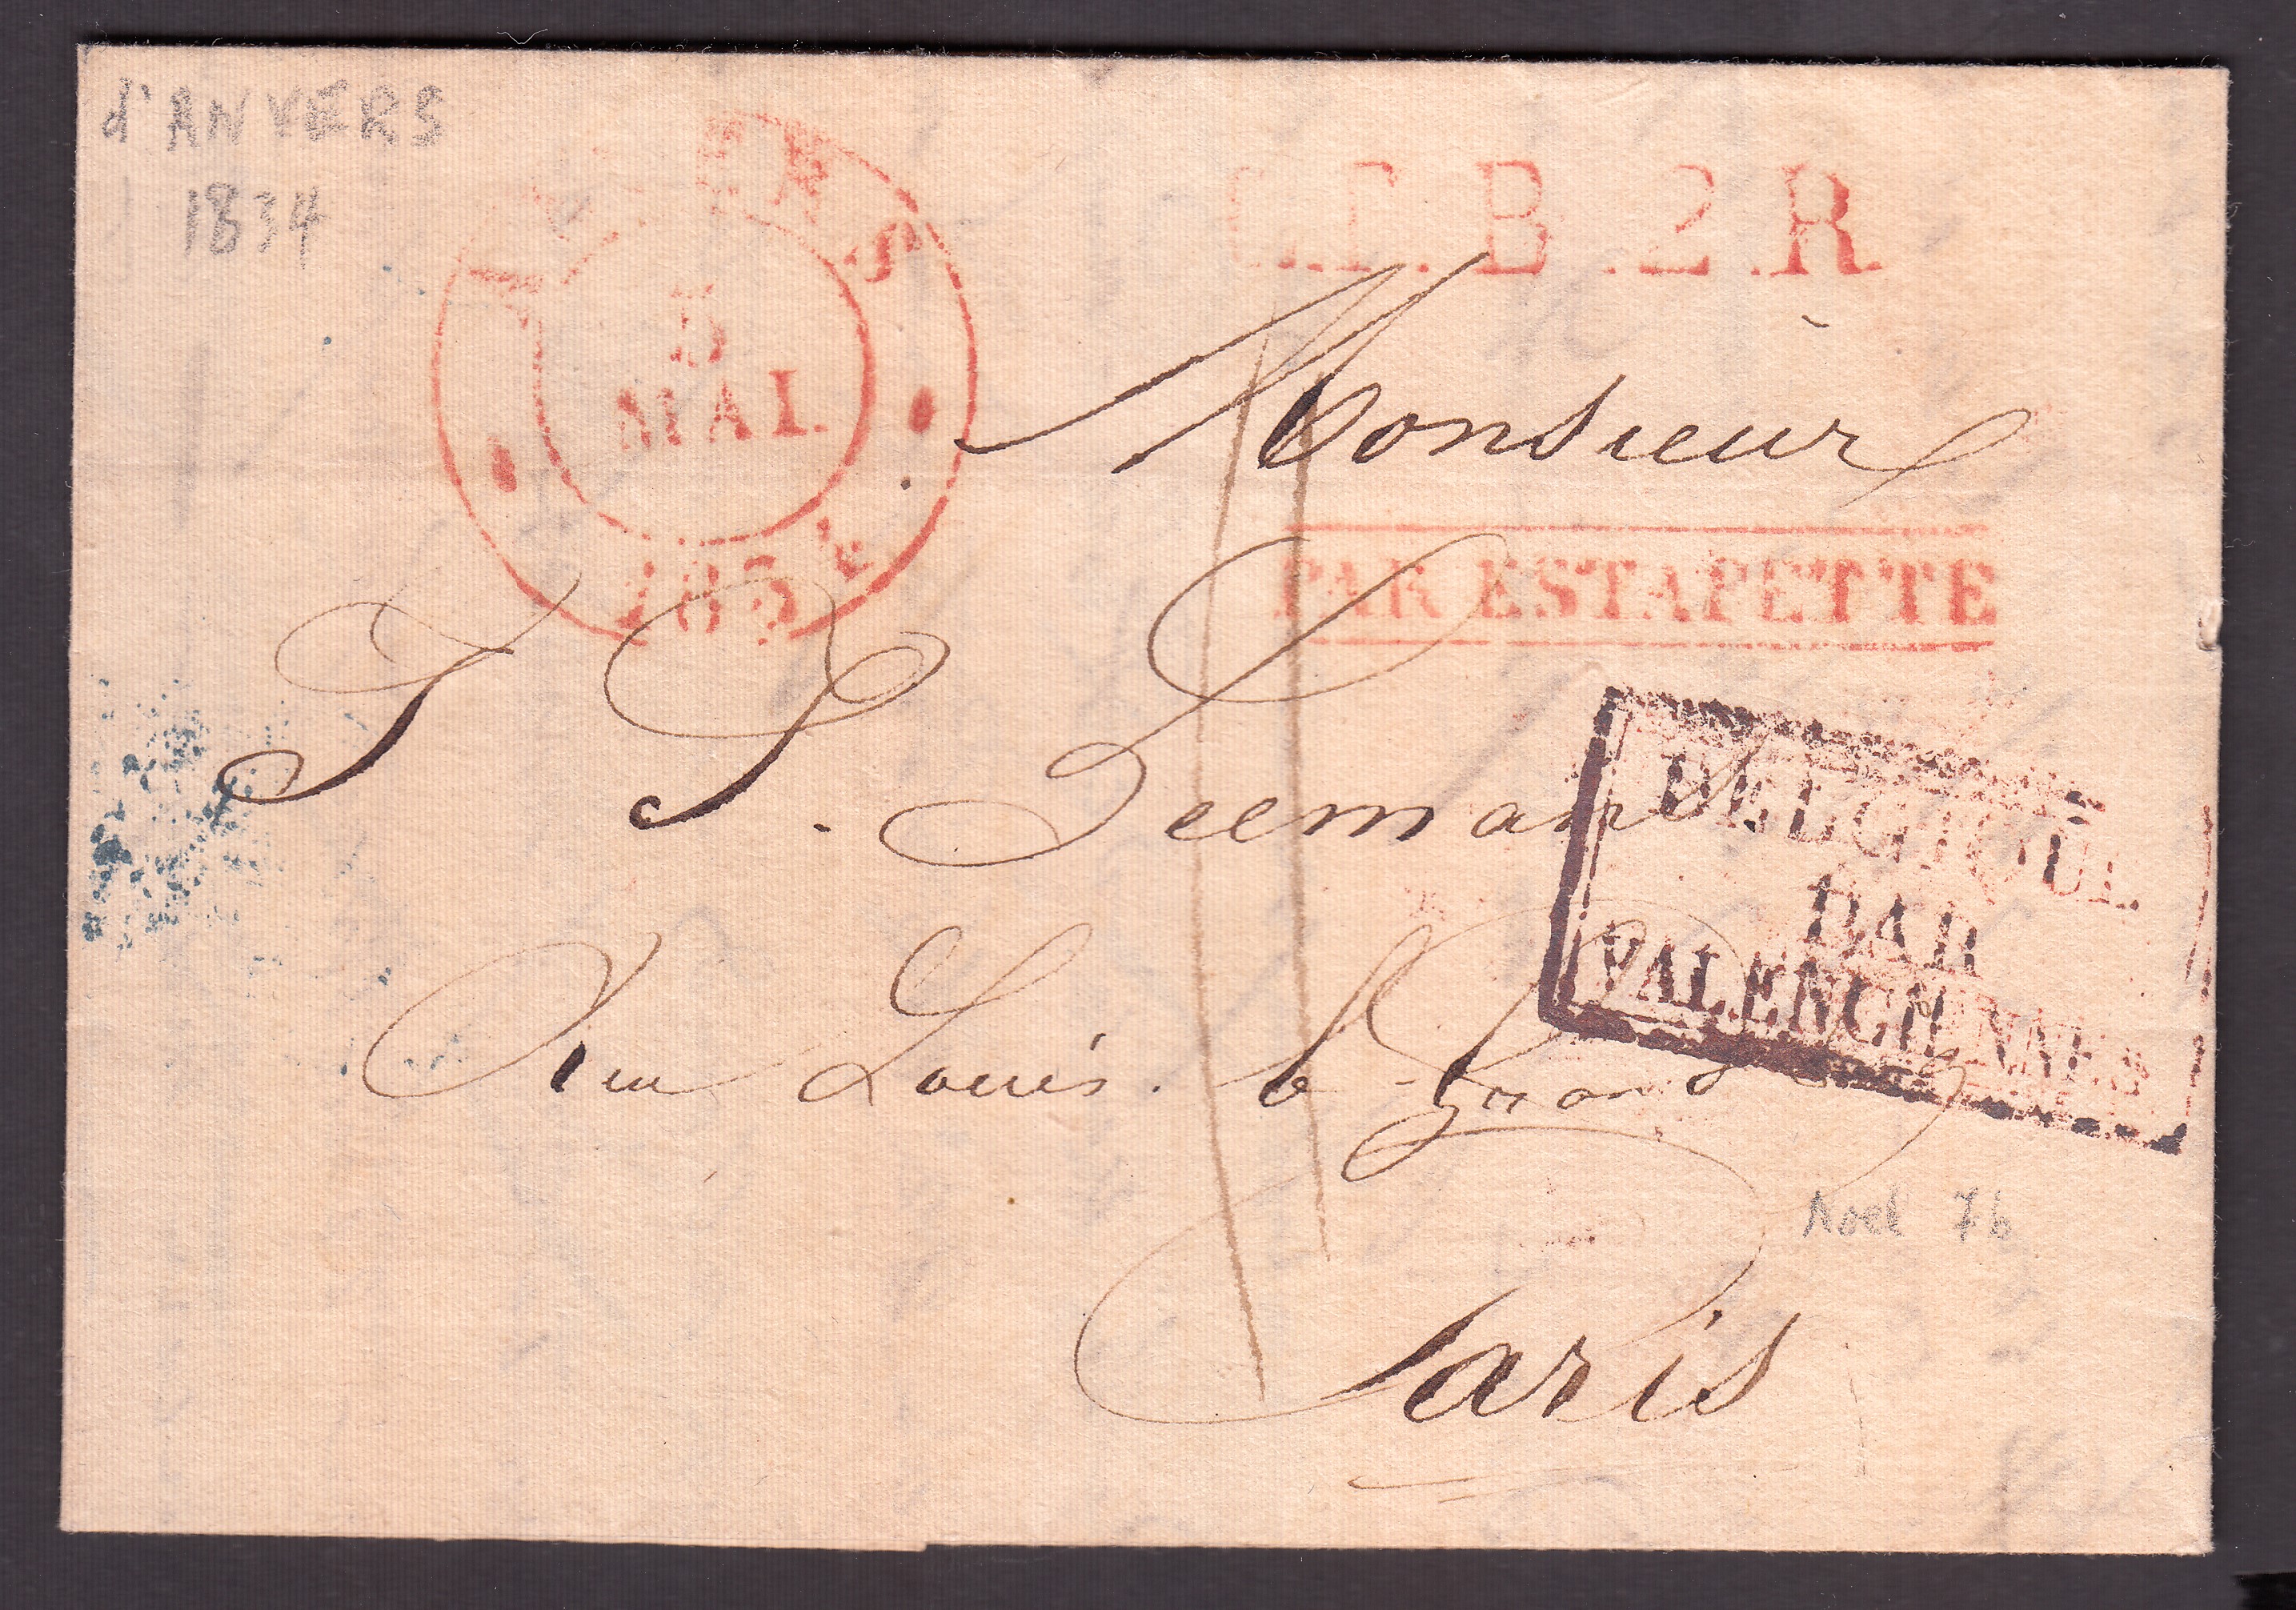 d'ANVERS
1834
ANVERS
5
MAI.
1834
.F.B.2.R.
Monsieur
PAR ESTAPETTE
J J. Seemans
BELGIQUE
PAR
VALENCIENNES
Rue Louis le Grand
Noel 76
Paris